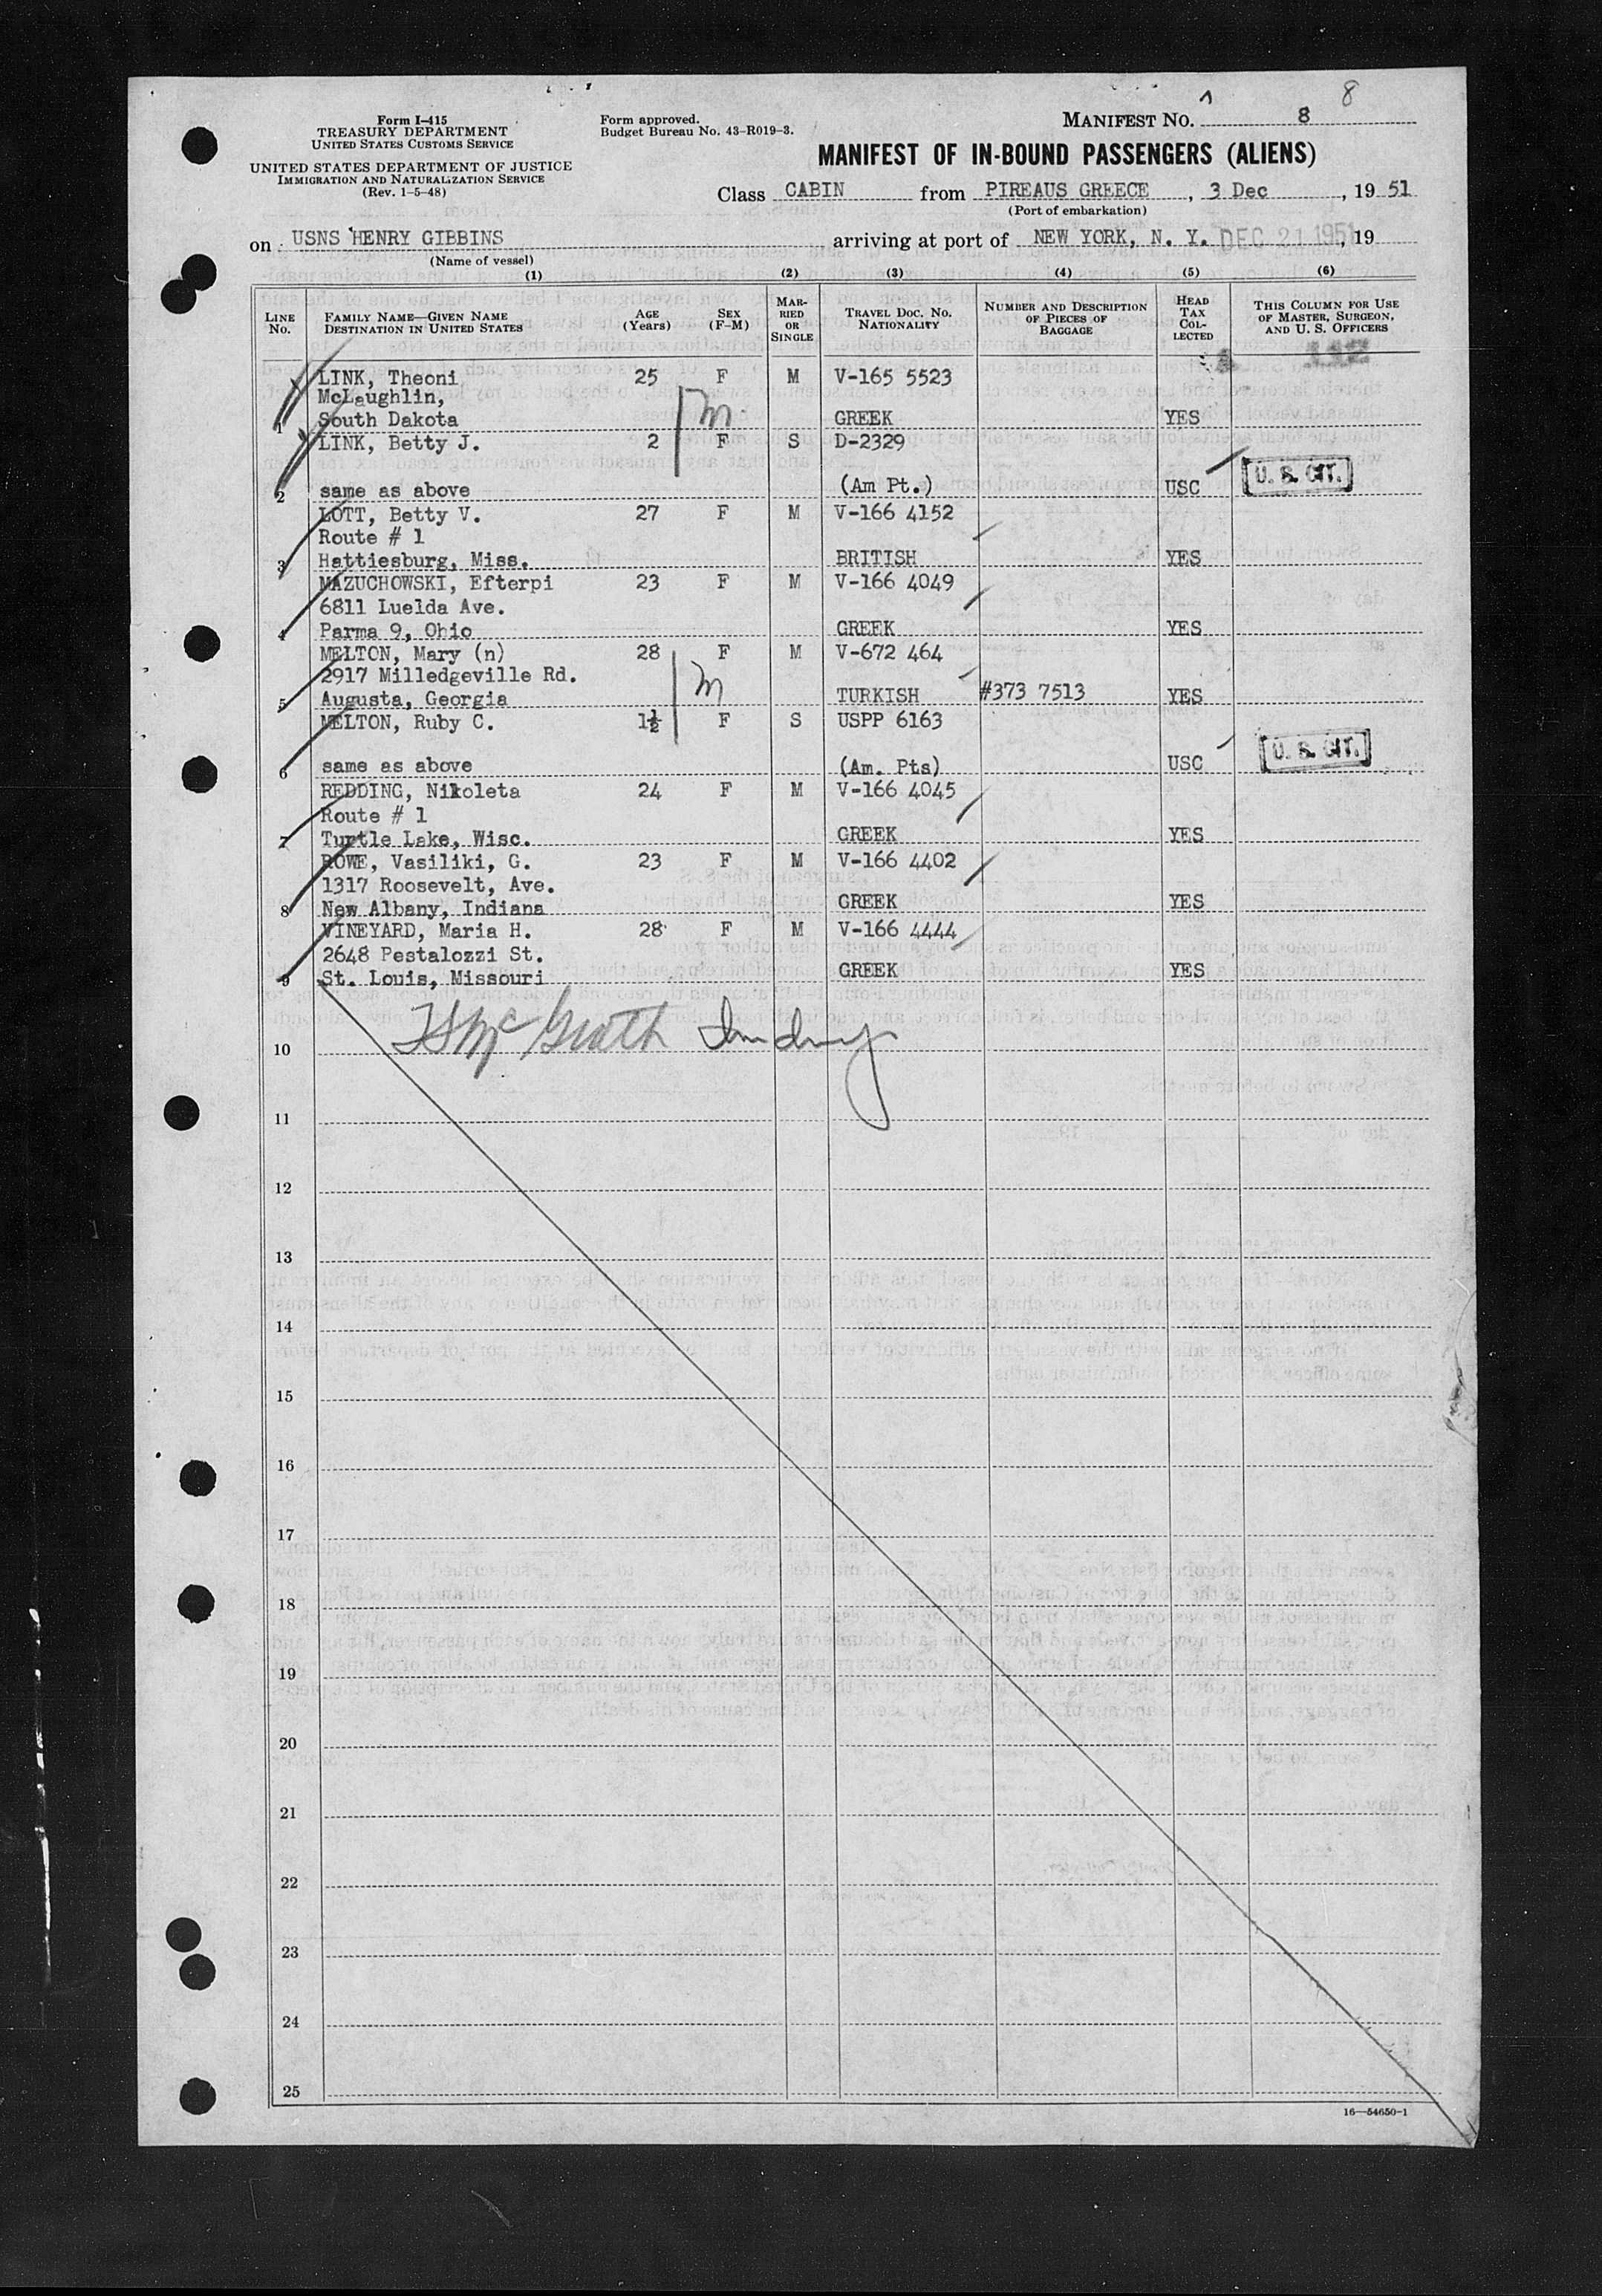 8
Form I-415
TREASURY DEPARTMENT
UNITED STATES CUSTOMS SERVICE
UNITED STATES DEPARTMENT OF JUSTICE
IMMIGRATION AND NATURALIZATION SERVICE
(Rev. 1-5-48)
Form approved.
Budget Bureau No. 43-R019-3.
MANIFEST NO. 8
MANIFEST OF IN-BOUND PASSENGERS (ALIENS)
Class CABIN from PIREAUS GREECE, 3 Dec, 19 51
(Port of embarkation)
on USNS HENRY GIBBINS arriving at port of NEW YORK, N. Y. DEC 21 1951, 19
(Name of vessel)
(1) (2) (3) (4) (5) (6)
LINE No. FAMILY NAME—GIVEN NAME DESTINATION IN UNITED STATES AGE (Years) SEX (F-M) MARRIED OR SINGLE TRAVEL DOC. NO. NATIONALITY NUMBER AND DESCRIPTION OF PIECES OF BAGGAGE HEAD TAX COLLECTED THIS COLUMN FOR USE OF MASTER, SURGEON, AND U. S. OFFICERS
LINK, Theoni 25 F M V-165 5523
McLaughlin,
1 South Dakota GREEK YES
m
LINK, Betty J. 2 F S D-2329
2 same as above (Am Pt.) USC U. S. CIT.
LOTT, Betty V. 27 F M V-166 4152
Route # 1
3 Hattiesburg, Miss. BRITISH YES
MAZUCHOWSKI, Efterpi 23 F M V-166 4049
6811 Luelda Ave.
4 Parma 9, Ohio GREEK YES
MELTON, Mary (n) 28 F M V-672 464
2917 Milledgeville Rd. m
5 Augusta, Georgia TURKISH #373 7513 YES
MELTON, Ruby C. 1½ F S USPP 6163
6 same as above (Am. Pts) USC U. S. CIT.
REDDING, Nikoleta 24 F M V-166 4045
Route # 1
7 Turtle Lake, Wisc. GREEK YES
ROWE, Vasiliki, G. 23 F M V-166 4402
1317 Roosevelt, Ave.
8 New Albany, Indiana GREEK YES
VINEYARD, Maria H. 28 F M V-166 4444
2648 Pestalozzi St.
9 St. Louis, Missouri GREEK YES
McGrath
10
11
12
13
14
15
16
17
18
19
20
21
22
23
24
25
16—54650-1